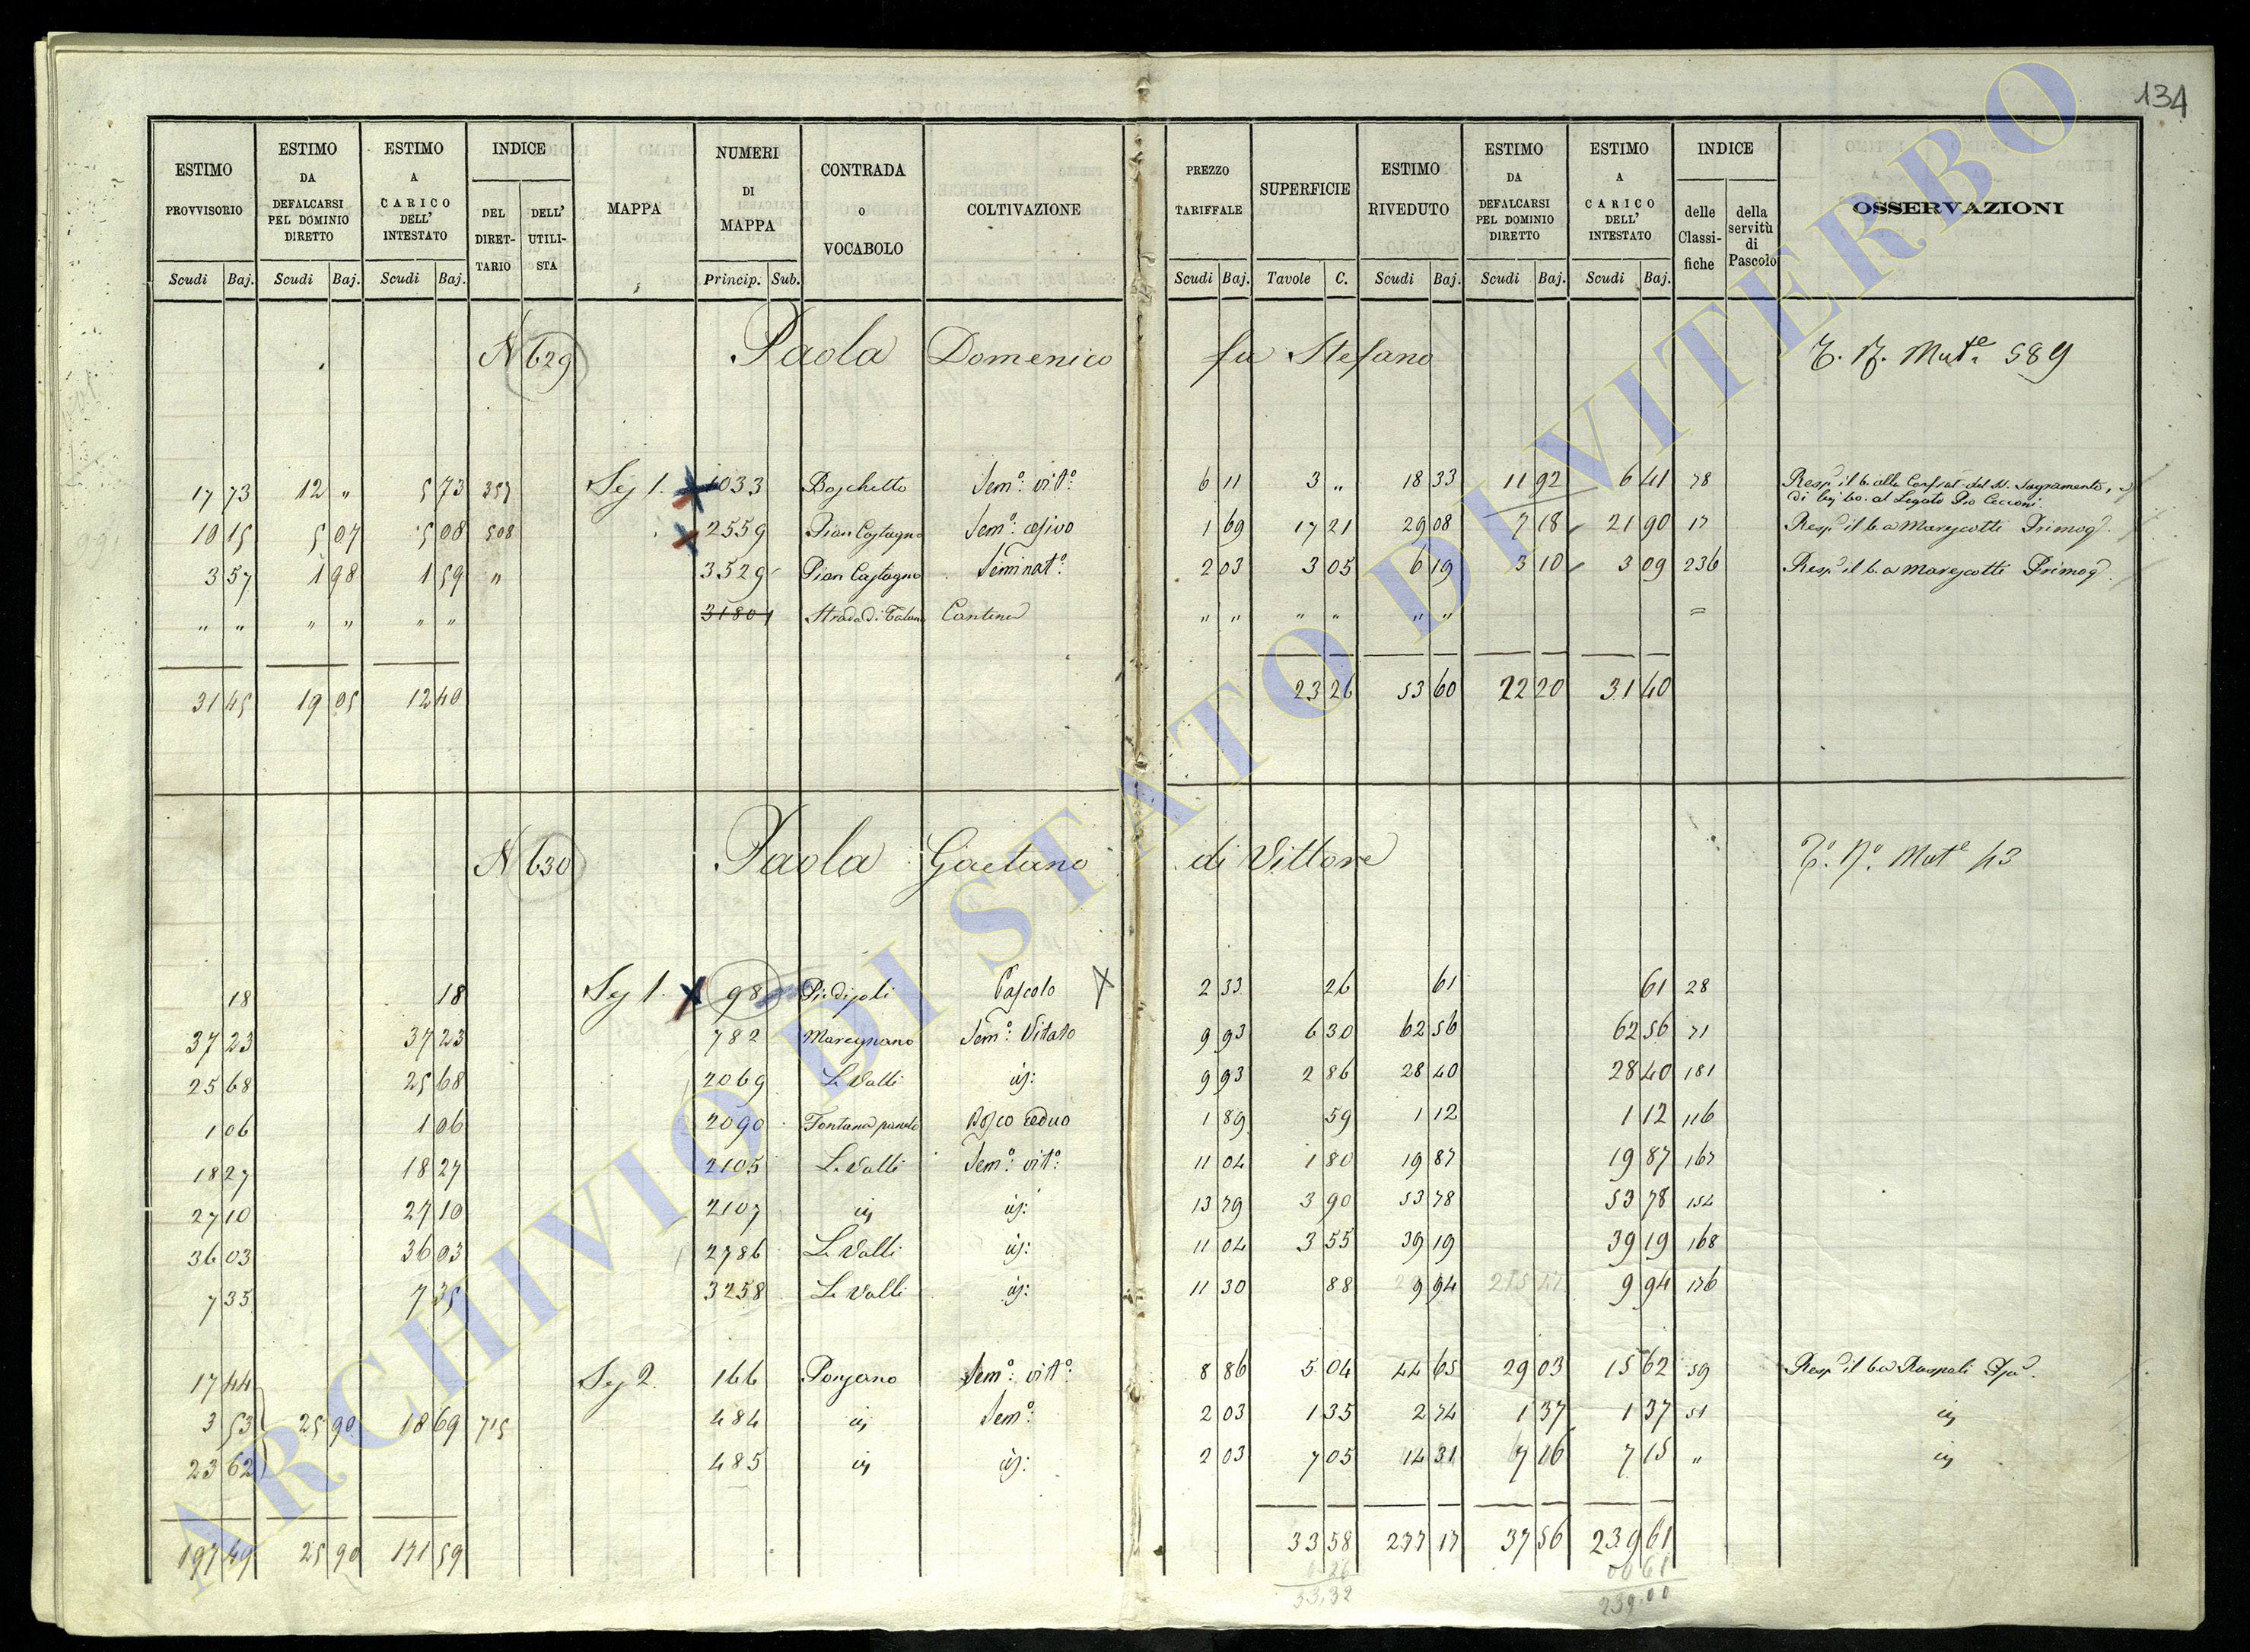 134
ESTIMO PROVVISORIO | ESTIMO DA DEFALCARSI PEL DOMINIO DIRETTO | ESTIMO A CARICO DELL' INTESTATO | INDICE DEL DIRETTARIO | DELL' UTILISTA | MAPPA | NUMERI DI MAPPA | CONTRADA o VOCABOLO | COLTIVAZIONE | PREZZO TARIFFALE | SUPERFICIE | ESTIMO RIVEDUTO | ESTIMO DA DEFALCARSI PEL DOMINIO DIRETTO | ESTIMO A CARICO DELL' INTESTATO | INDICE delle Classifiche | della servitù di Pascolo | OSSERVAZIONI
Scudi Baj. | Scudi Baj. | Scudi Baj. | Princip. Sub. | Scudi Baj. | Tavole C. | Scudi Baj. | Scudi Baj. | Scudi Baj.
N 629 Paola Domenico fu Stefano 589
17 73 | 12 " | 5 73 | 357 | Sez 1. | 1033 | Boschetto | Sem.o: vit.o: | 6 11 | 3 " | 18 33 | 11 92 | 6 41 | 78 | Resp. il b. alla Confrat. del SS. Sagramento, e
di baj 60. al Legato Pio Cecconi.
10 15 | 5 07 | 5 08 | 508 | 2559 | Pian Castagno | Sem.o: | 1 69 | 17 21 | 29 08 | 7 18 | 21 90 | 17 | Resp. il b. a Marescotti Primog.
3 57 | 1 98 | 1 59 | " | 3529 | Pian Castagno | Seminat.o: | 2 03 | 3 05 | 6 19 | 3 10 | 3 09 | 236 | Resp. il b. a Marescotti Primog.
" " | " " | " " | 3180 1 | Strada di | Cantina | " " | " " | " " | =
31 45 | 19 05 | 12 40 | 23 26 | 53 60 | 22 20 | 31 40
N 630 Paola Gaetano di Vittore 43
18 | 18 | Sez 1. | 98 | Piedijoli | Pascolo | 2 33 | 26 | 61 | 61 | 28
37 23 | 37 23 | 782 | Maregnano | Sem.o: Vitato | 9 93 | 6 30 | 62 56 | 62 56 | 71
25 68 | 25 68 | 2069 | Le Valli | id: | 9 93 | 2 86 | 28 40 | 28 40 | 181
1 06 | 1 06 | 2090 | Fontana | Bosco ceduo | 1 89 | 59 | 1 12 | 1 12 | 116
18 27 | 18 27 | 2105 | Le Valli | Sem.o: vit.o: | 11 04 | 1 80 | 19 87 | 19 87 | 167
27 10 | 27 10 | 2107 | id | id: | 13 79 | 3 90 | 53 78 | 53 78 | 154
36 03 | 36 03 | 2786 | Le Valli | id: | 11 04 | 3 55 | 39 19 | 39 19 | 168
7 35 | 7 35 | 3258 | Le Valli | id: | 11 30 | 88 | 9 94 | 9 94 | 176
17 44 | Sez 2. | 166 | Ponzano | Sem.o: vit.o: | 8 86 | 5 04 | 44 65 | 29 03 | 15 62 | 59 | Resp. il b. a Ruspoli
3 53 | 25 90 | 18 69 | 715 | 484 | id | Sem.o: | 2 03 | 1 35 | 2 74 | 1 37 | 1 37 | 51 | id
23 62 | 485 | id | id: | 2 03 | 7 05 | 14 31 | 7 16 | 7 15 | " | id
197 49 | 25 90 | 171 59 | 33 58 | 277 17 | 37 56 | 239 61
0.26 | 00 61
33,32 | 239.00
ARCHIVIO DI STATO DI VITERBO